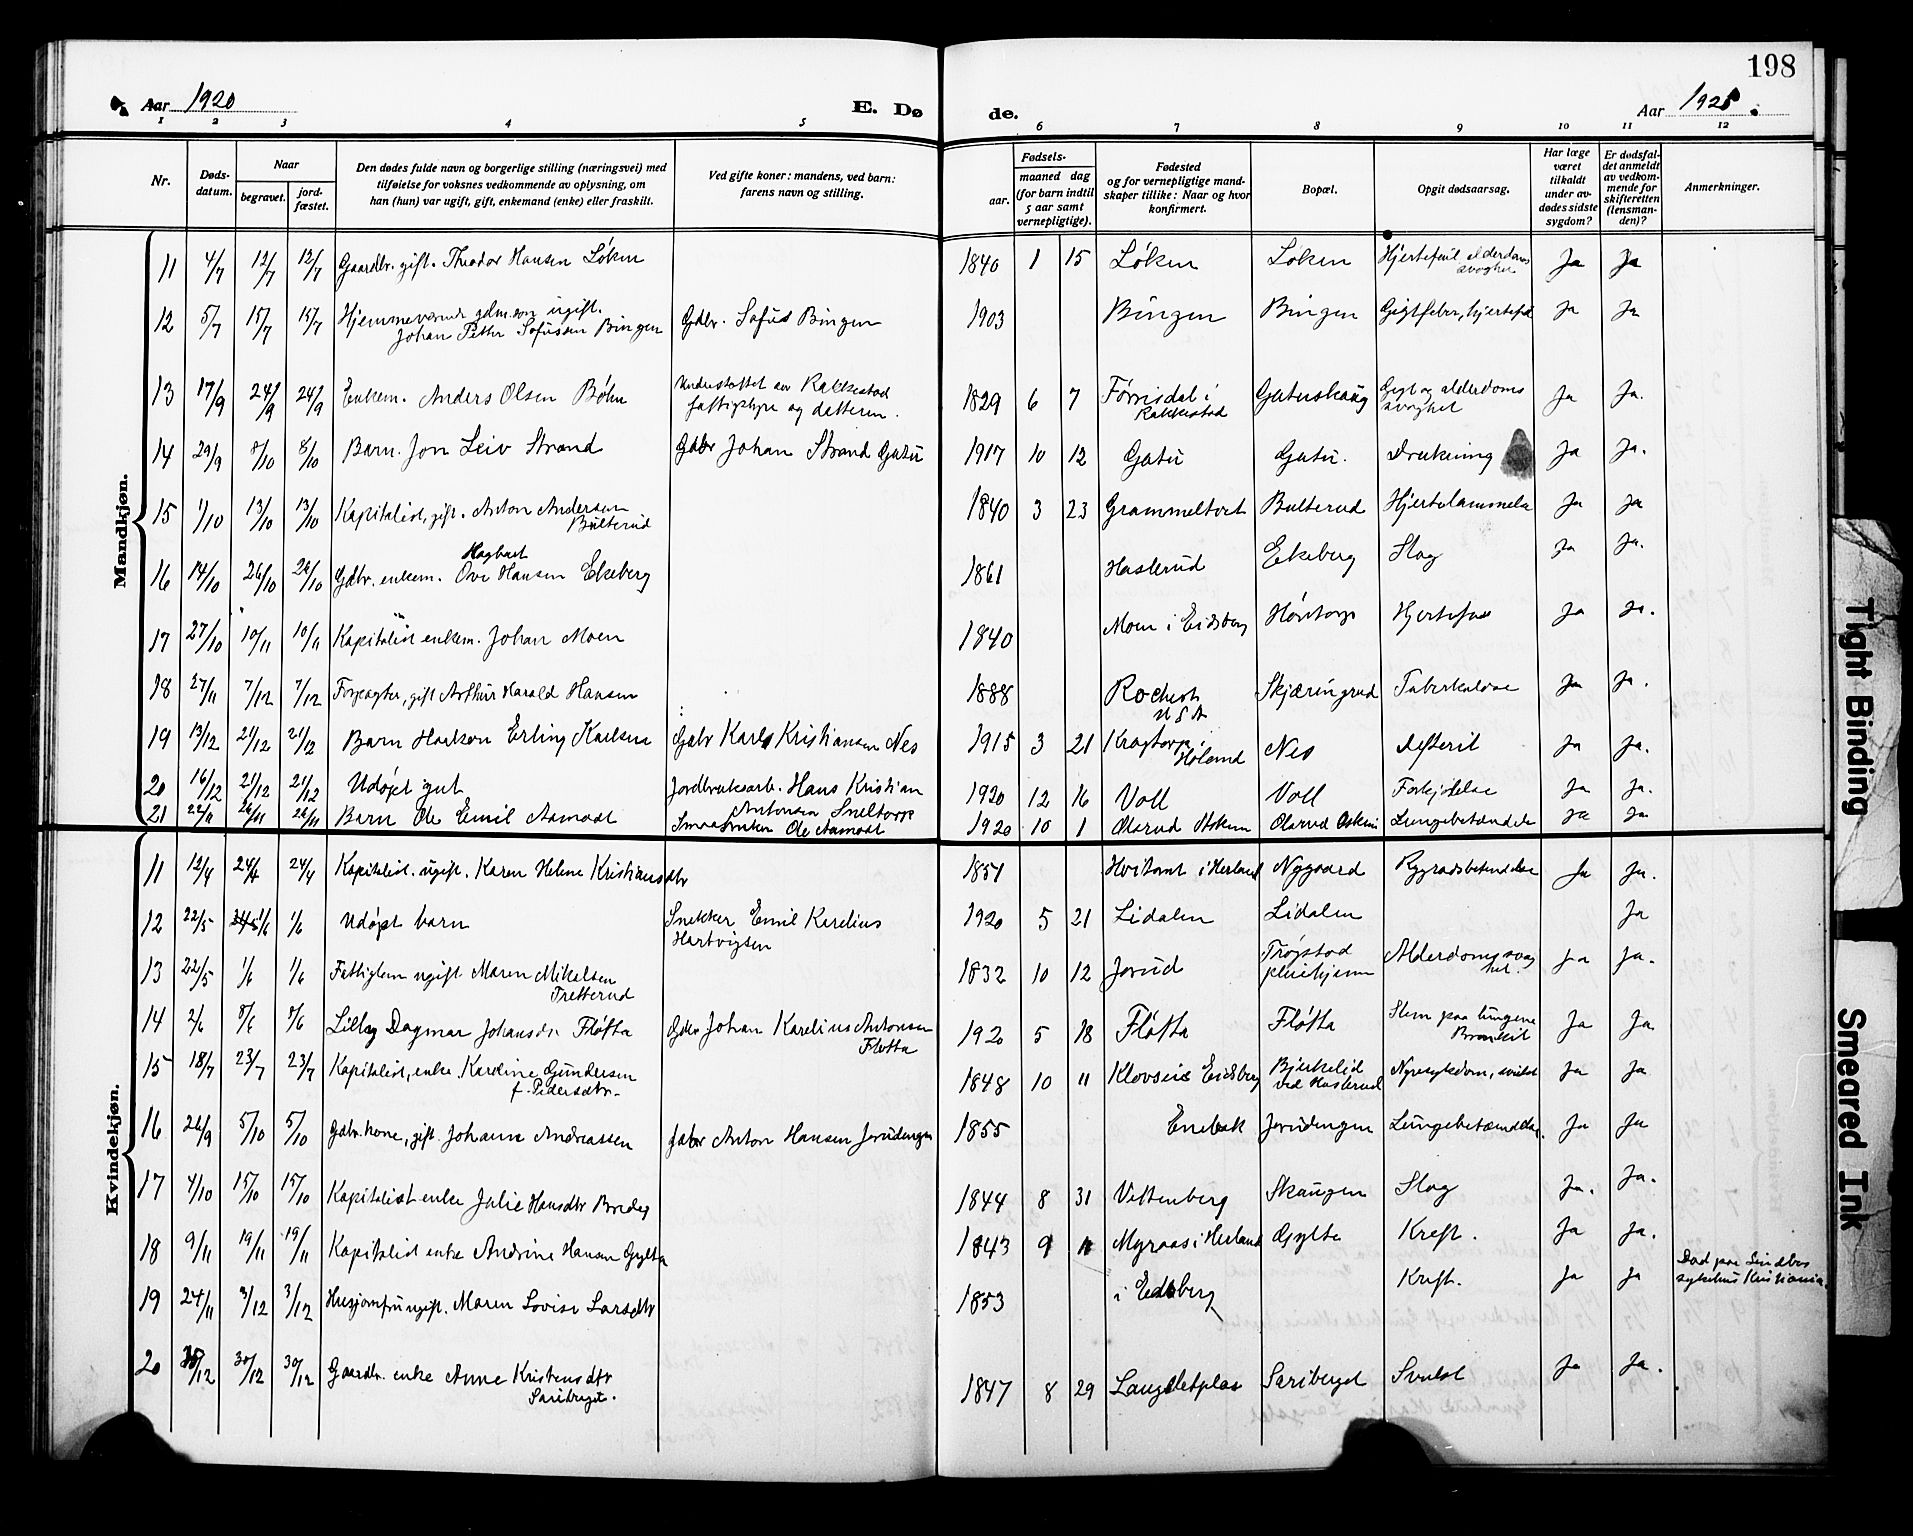 198
Aar 1920
E. Dø
de.
Aar 1920.
1 2 3 4 5 6 7 8 9 10 11 12
Nr.
Døds-
datum.
Naar
begravet.
jord-
fæstet.
Den dødes fulde navn og borgerlige stilling (næringsvei) med
tilføielse for voksnes vedkommende av oplysning, om
han (hun) var ugift, gift, enkemand (enke) eller fraskilt.
Ved gifte koner: mandens, ved barn:
farens navn og stilling.
Fødsels-
aar.
maaned dag
(for barn indtil
5 aar samt
vernepligtige).
Fødested
og for vernepligtige mand-
skaper tillike: Naar og hvor
konfirmert.
Bopæl.
Opgit dødsaarsag.
Har læge
været
tilkaldt
under av-
dødes sidste
sygdom?
Er dødsfal-
det anmeldt
av vedkom-
mende for
skifteretten
(lensman-
den)?
Anmerkninger.
Mandkjøn.
11 4/7 12/7 12/7 Gaardbr. gift. Theodor Hansen Løken 1840 1 15 Løken Løken Hjertefeil alderdoms Ja Ja
svaghet
12 5/7 15/7 15/7 Hjemmeværende gdm.søn ugift. Gdbr. Sofus Bingen 1903 Bingen Bingen Gigtfeber, hjertefeil Ja Ja
Johan Petter Sofussen Bingen
13 17/9 24/9 24/9 Enkem. Anders Olsen Bøhn Understøttet av Rakkestad 1829 6 7 Førrisdal i Gatuskaug Gigt og alderdoms Ja Ja.
fattigstyre og datteren. Rakkestad svaghet
14 29/9 8/10 8/10 Barn. Jon Leiv Strand Gdbr Johan Strand Gatu 1917 10 12 Gatu Gatu. Drukning Ja Ja.
15 1/10 13/10 13/10 Kapitalist, gift. Anton Andersen 1840 3 23 Grammeltvet Bulterud Hjertelammelse Ja Ja
Bulterud
Hagbart
16 14/10 26/10 26/10 Gdbr. enkem. Ove Hansen Ekeberg 1861 Haslerud Ekeberg Slag Ja Ja.
17 27/10 10/11 10/11 Kapitalist enkem. Johan Moen 1840 Moen i Eidsberg Høntorp Hjertefeil Ja Ja.
18 27/11 7/12 7/12 Forpagter, gift Arthur Harald Hansen 1888 Skjæringrud Tuberkulose Ja Ja.
USA
19 13/12 21/12 21/12 Barn Haakon Erling Karlsen Gdbr Karl Kristiansen Nes 1915 3 21 Kragtorp i Nes Difterit Ja Ja.
Høland
20 16/12 21/12 21/12 Udøpt gut Jordbruksarb. Hans Kristian 1920 12 16 Voll Voll Forkjølelse Ja Ja.
Antonsen Sneltorp
21 22/11 26/11 26/11 Barn Ole Emil Aamodt Smaabruker Ole Aamodt 1920 10 1 Olarud Askim Olarud Askim Lungebetændelse Ja Ja
Kvindekjøn.
11 12/4 24/4 24/4 Kapitalist. ugift. Karen Helene Kristiansdtr 1851 Hvitamt i Herland Nygaard Rygradsbetændelse Ja Ja.
12 22/5 1/6 1/6 Udøpt barn Snekker Emil Karelius 1920 5 21 Lidalen Lidalen Ja
Hartvigsen
13 22/5 1/6 1/6 Fattiglem ugift Maren Mikelsen 1832 10 12 Jorud Trøgstad Alderdomssvag Ja Ja.
Tretterud pleiehjem het.
14 2/6 8/6 8/6 Lilly Dagmar Johansdr Fløtta Gdbr Johan Karelius Antonsen 1920 5 18 Fløtta Fløtta Slem paa lungene Ja Ja
Fløtta Bronkit
15 18/7 23/7 23/7 Kapitalist, enke. Karoline Gundersen 1848 10 11 Eidsberg Bjerkelid Nyresykdom, svulst Ja Ja
f. Pedersdtr. ved Haslerud
16 26/9 5/10 5/10 Gdbr.kone, gift. Johanne Andreassen Gdbr Anton Hansen Jorudengen 1855 Enebak Jorudengen Lungebetændelse. Ja Ja
17 4/10 15/10 15/10 Kapitalist enke Julie Hansdtr Bredeg 1844 8 31 Vittenberg Skaugen Slag Ja. Ja.
18 9/11 19/11 19/11 Kapitalist enke Andrine Hansen Gylta 1843 9 11 Myraas i Herland Gylte Kreft. Ja Ja.
19 24/11 3/12 3/12 Husjomfru ugift. Maren Lovise Larsdtr 1853 i Eidsberg Kreft. Ja Ja Død paa
sykehus Kristiania.
20 30/12 30/12 Gaardbr. enke Anne Kristensdtr 1847 8 29 Langsletplas Sariberget Svulst Ja Ja.
Sariberget.
Tight Binding
Smeared Ink